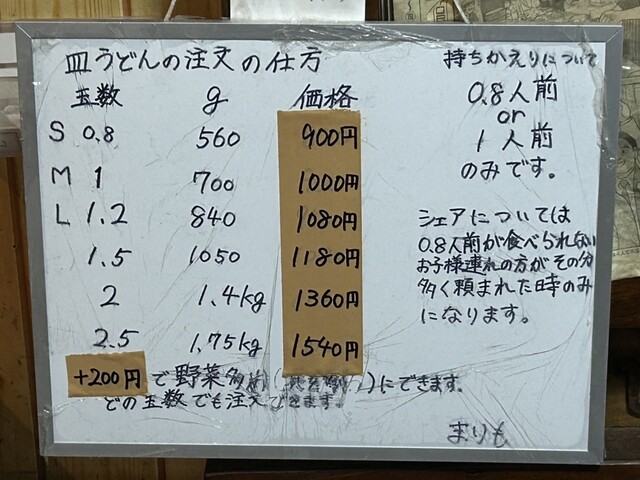 皿うどんの注文の仕方
玉数 g 価格
S 0.8 560 900円
M 1 700 1000円
L 1.2 840 1080円
1.5 1050 1180円
2 1.4kg 1360円
2.5 1.75kg 1540円
+200円で野菜多め( )にできます。
どの玉数でも注文できます。
持ちかえりについて
0.8人前
or
1人前
のみです。
シェアについては
0.8人前が食べられない
お子様連れの方がその分
多く頼まれた時のみ
になります。
まりも